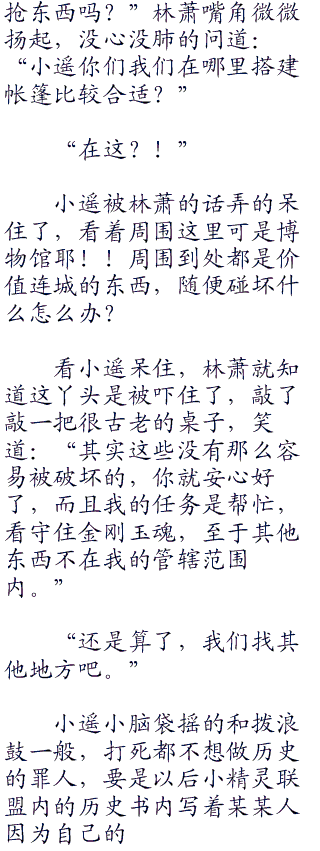 抢东西吗？”林萧嘴角微微
扬起，没心没肺的问道：
“小遥你们我们在哪里搭建
帐篷比较合适？”
“在这？！”
小遥被林萧的话弄的呆
住了，看着周围这里可是博
物馆耶！！周围到处都是价
值连城的东西，随便碰坏什
么怎么办？
看小遥呆住，林萧就知
道这丫头是被吓住了，敲了
敲一把很古老的桌子，笑
道：“其实这些没有那么容
易被破坏的，你就安心好
了，而且我的任务是帮忙，
看守住金刚玉魂，至于其他
东西不在我的管辖范围
内。”
“还是算了，我们找其
他地方吧。”
小遥小脑袋摇的和拨浪
鼓一般，打死都不想做历史
的罪人，要是以后小精灵联
盟内的历史书内写着某某人
因为自己的